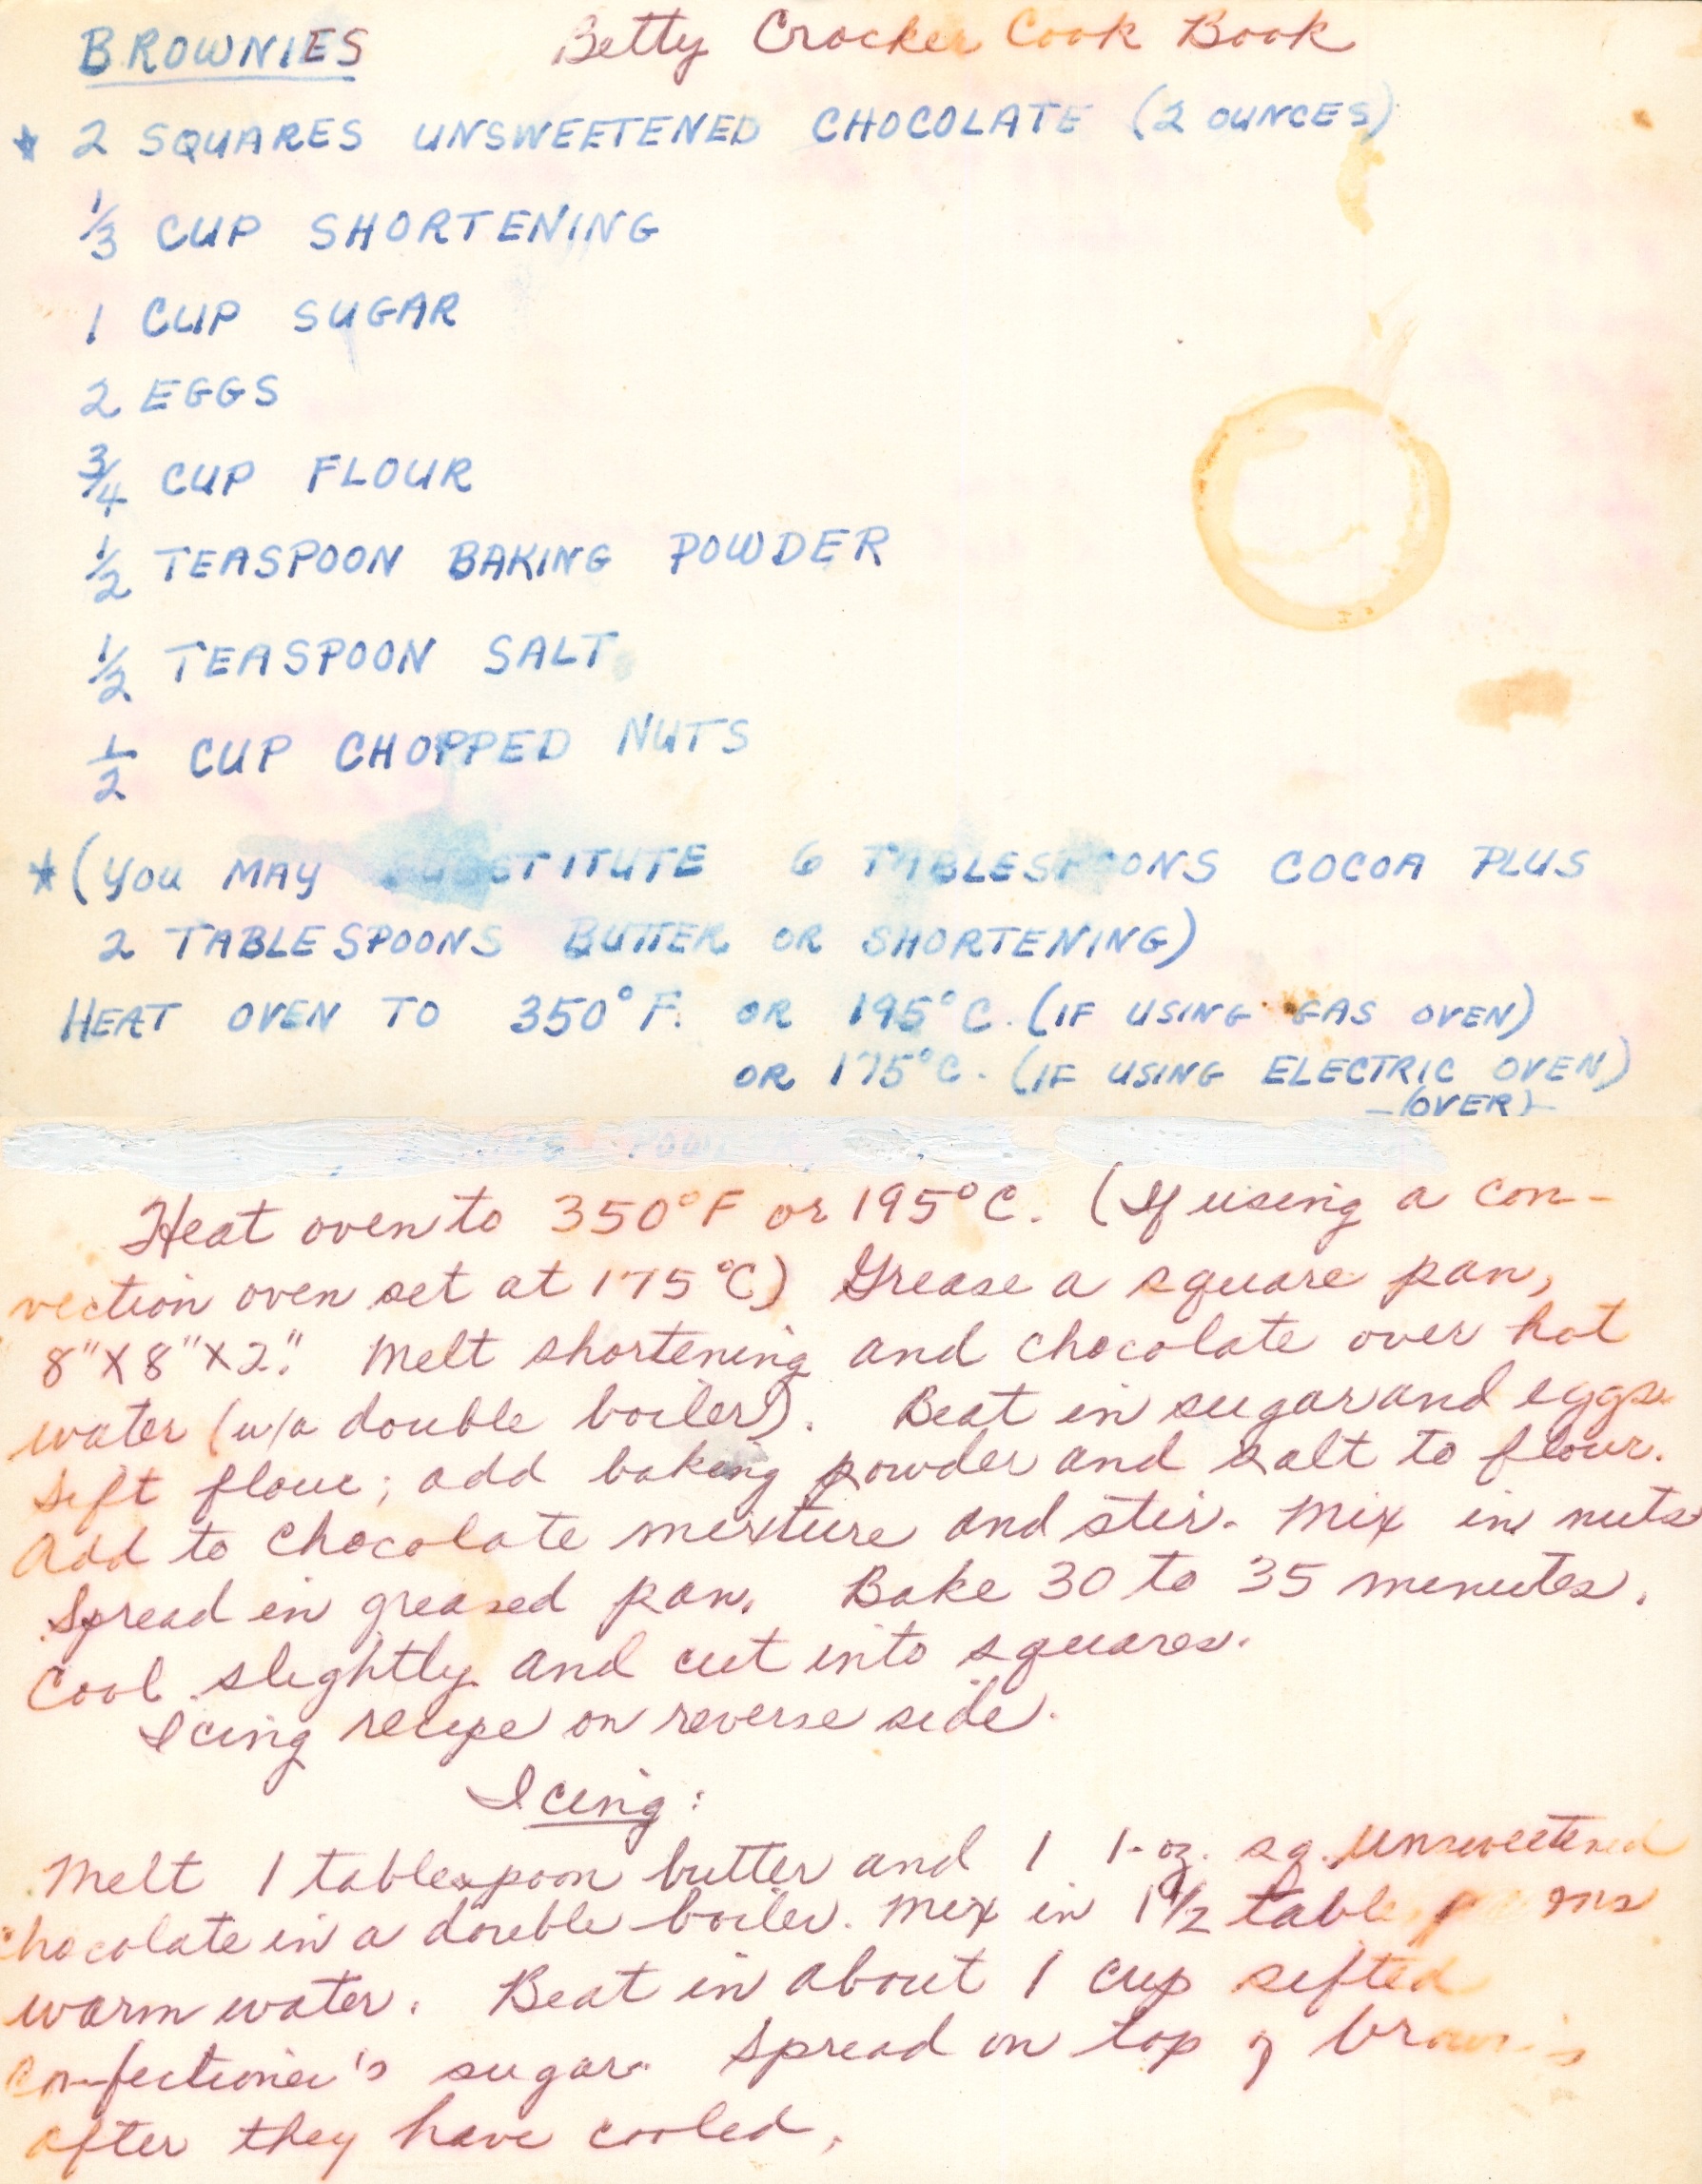 BROWNIES Betty Crocker Cook Book
* 2 SQUARES UNSWEETENED CHOCOLATE (2 OUNCES)
1/3 CUP SHORTENING
1 CUP SUGAR
2 EGGS
3/4 CUP FLOUR
1/2 TEASPOON BAKING POWDER
1/2 TEASPOON SALT
1/2 CUP CHOPPED NUTS
* (YOU MAY SUBSTITUTE 6 TABLESPOONS COCOA PLUS
2 TABLESPOONS BUTTER OR SHORTENING)
HEAT OVEN TO 350°F. OR 195°C. (IF USING GAS OVEN)
OR 175°C. (IF USING ELECTRIC OVEN)
-(OVER)-
Heat oven to 350°F or 195°C. (If using a con-
vection oven set at 175°C) Grease a square pan,
8"X8"X2". Melt shortening and chocolate over hot
water (w/a double boiler). Beat in sugar and eggs.
Sift flour; add baking powder and salt to flour.
Add to chocolate mixture and stir. Mix in nuts
Spread in greased pan. Bake 30 to 35 minutes.
Cool slightly and cut into squares.
Icing recipe on reverse side.
Icing:
Melt 1 tablespoon butter and 1 1-oz. sq. unsweetened
chocolate in a double boiler. Mix in 1 1/2 tablespoons
warm water. Beat in about 1 cup sifted
confectioner's sugar. Spread on top of brownies
after they have cooled.